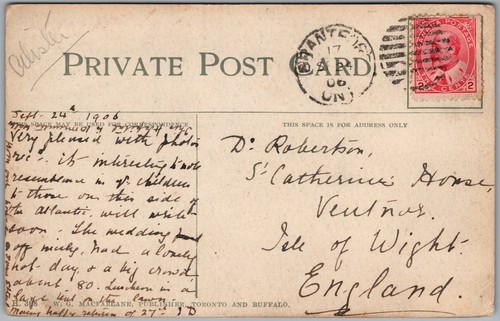 PRIVATE POST CARD
BRANTFORD
17
06
ONT
CANADA POSTAGE
2 CENTS 2
THIS SPACE MAY BE USED FOR CORRESPONDENCE
THIS SPACE IS FOR ADDRESS ONLY
Sept. 24th 1906
Very pleased with photos
rec'd. it interesting to note
resemblance in yr. children
to those on this side of
the Atlantic, will write
soon. The wedding
off nicely, had a lovely
hot day, & a big crowd
about 80. Luncheon in a
large tent on the lawn.
Many happy returns of 27th J D
Dr. Robertson,
St. Catherine's House,
Ventnor.
Isle of Wight.
England.
H. 3 W. G. MACFARLANE, PUBLISHER, TORONTO AND BUFFALO.